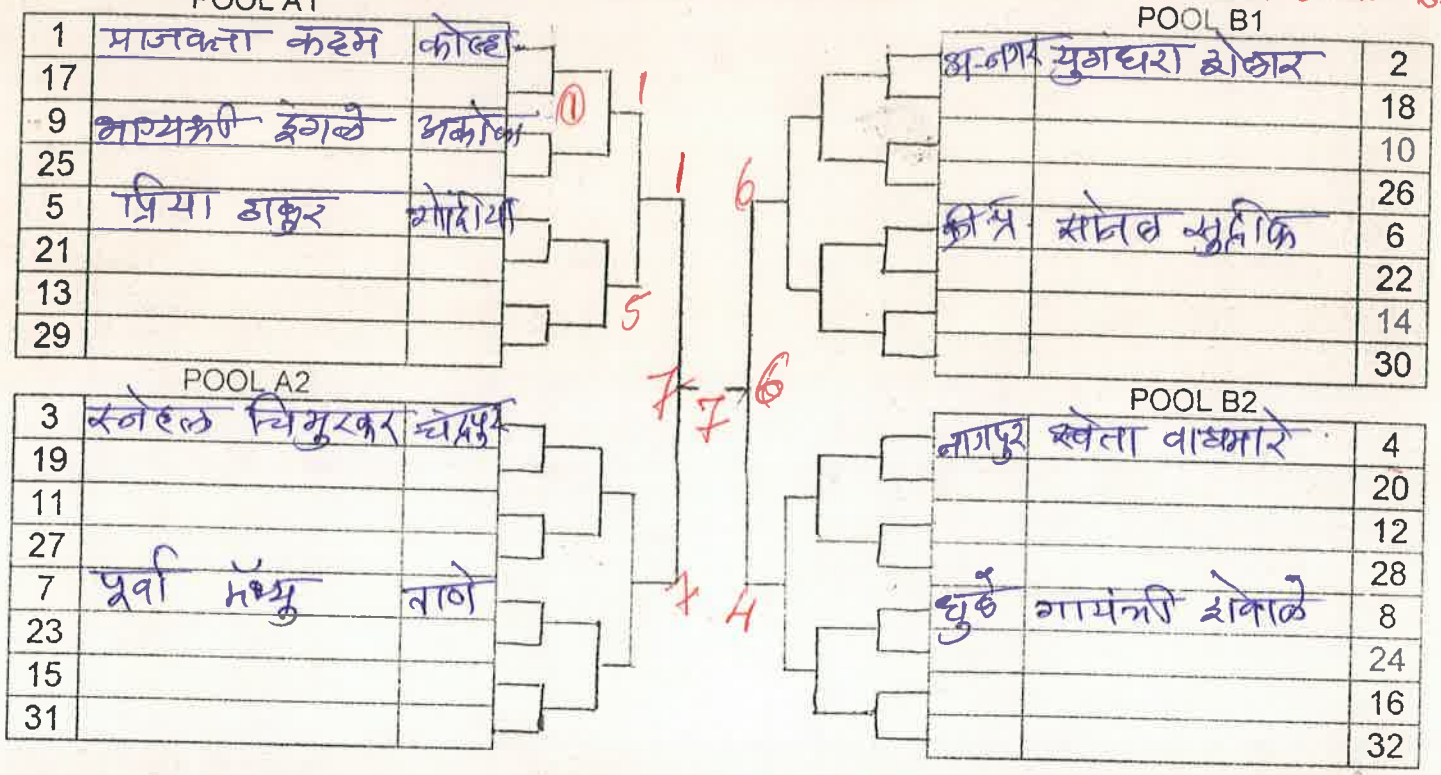 POOL A1
1 प्राजक्ता कदम कोल्हा
17
9 भाग्यश्री इंगळे अकोला
25
5 प्रिया ठाकुर गोंदीया
21
13
29
① 1
5
1
POOL A2
3 स्नेहल चिमुरकर चंद्रपुर
19
11
27
7 पूर्वा मॅथ्यु ठाणे
23
15
31
7
7
7
6
6
4
POOL B1
अ-नगर युगंधरा शेळार 2
18
10
26
सोनल 6
22
14
30
POOL B2
नागपुर स्वेता वाघमारे 4
20
12
28
धुळे गायत्री शेवाळे 8
24
16
32